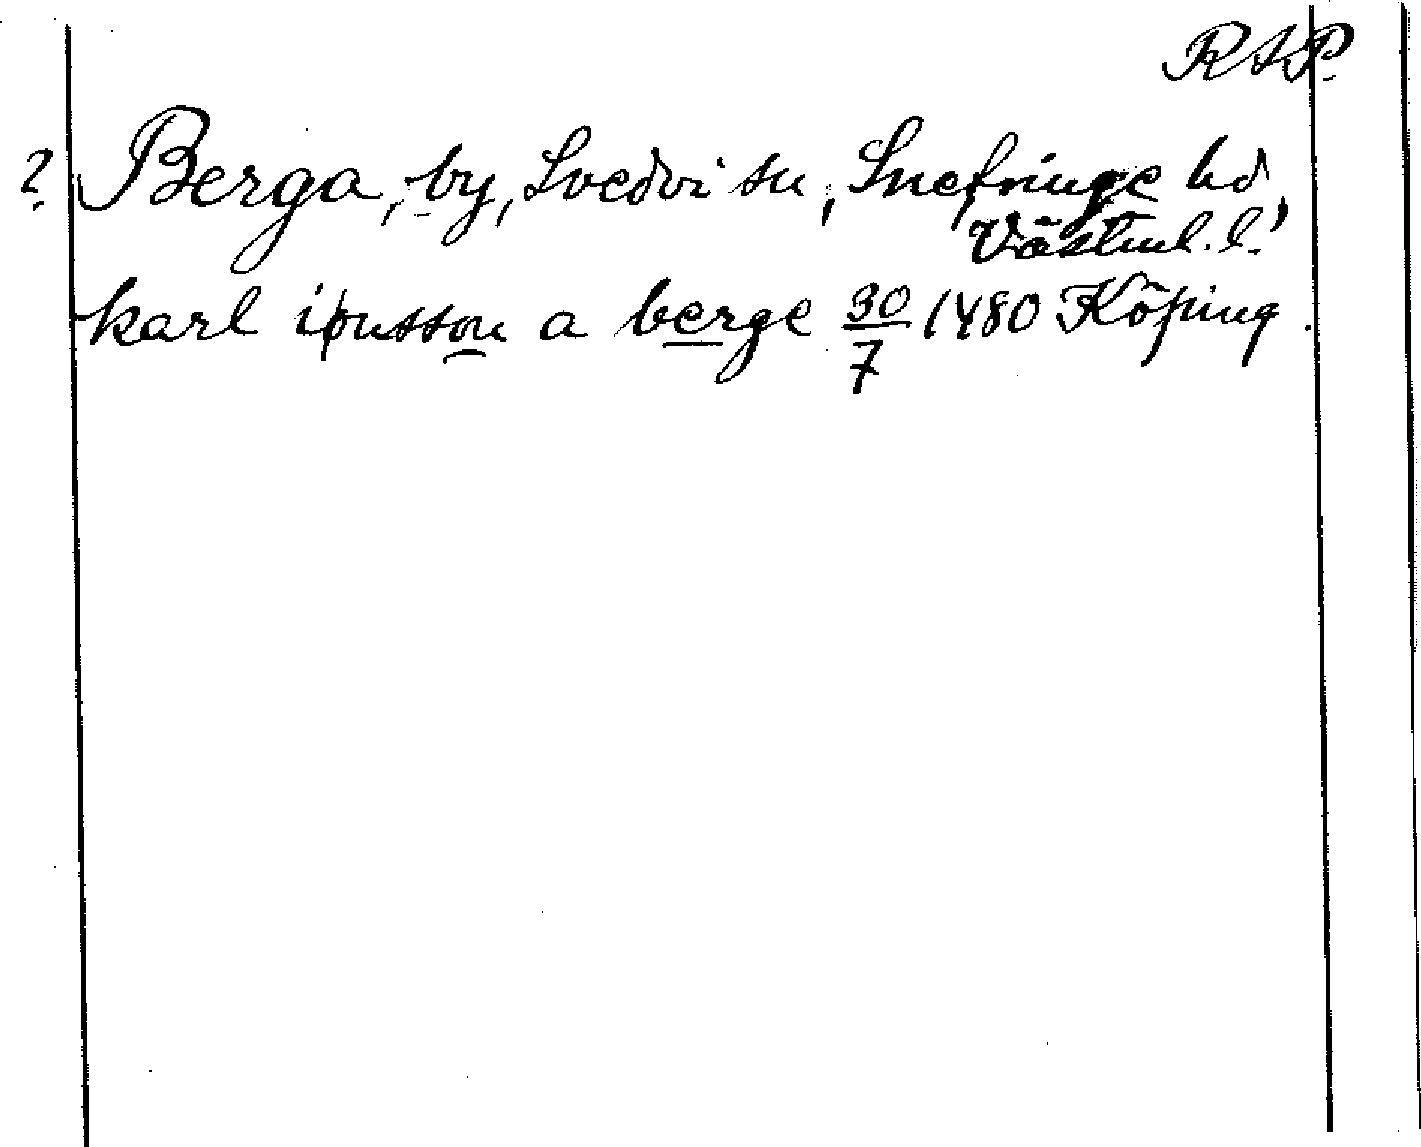 RAP.
? Berga, by, Svedvi sn, Snefringe hd,
Västml. l.
karl iønsson a berge 30/7 1480 Köping.